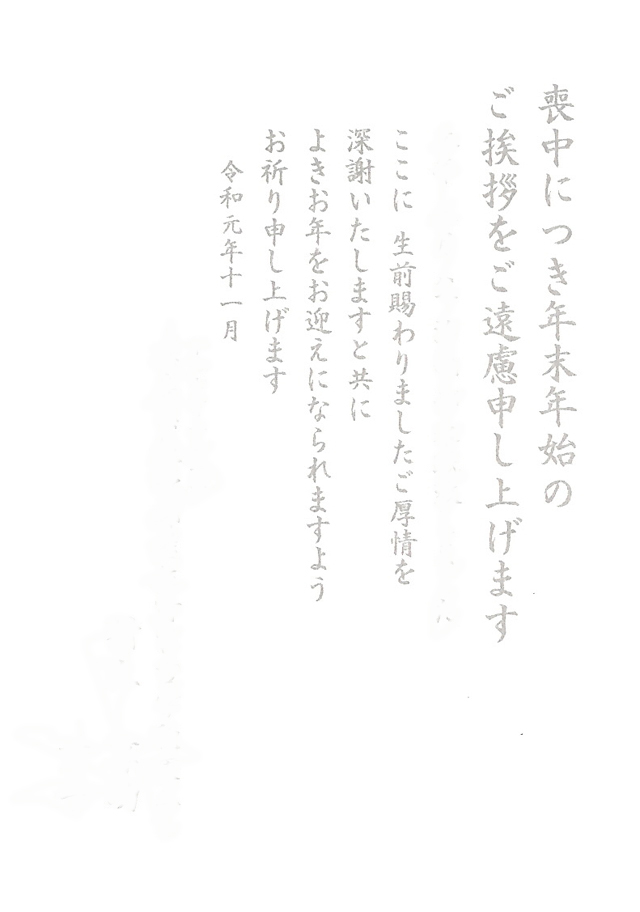 喪中につき年末年始の
ご挨拶をご遠慮申し上げます
ここに 生前賜わりましたご厚情を
深謝いたしますと共に
よきお年をお迎えになられますよう
お祈り申し上げます
令和元年十一月